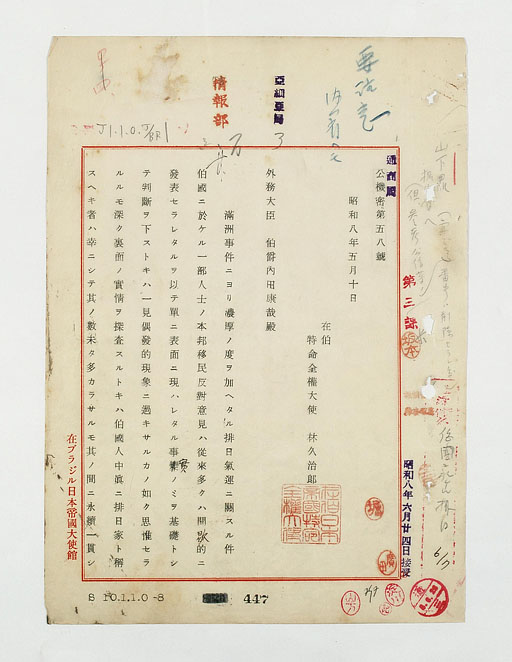 通商局
公機密第五八號
昭和八年五月十日
在伯
特命全權大使　林久治郎
外務大臣　伯爵內田康哉殿
滿洲事件ニヨリ濃厚ノ度ヲ加ヘタル排日氣運ニ關スル件
伯國ニ於ケル一部人士ノ本邦移民反對意見ハ從來多クハ間歇的ニ
發表セラレタルヲ以テ單ニ表面ニ現ハレタル事實ノミヲ基礎トシ
テ判斷ヲ下ストキハ一見偶發的現象ニ過キサルカノ如ク思惟セラ
ルルモ深ク裏面ノ實情ヲ探査スルトキハ伯國人中眞ニ排日家ト稱
スヘキ者ハ幸ニシテ其ノ數未タ多カラサルモ其ノ間ニ永續一貫シ
在ブラジル日本帝國大使館
情報部
亞細亞局
第三課
昭和八年六月廿四日接受
J1.1.0.J/BR1
S 10.1.1.0-8
447